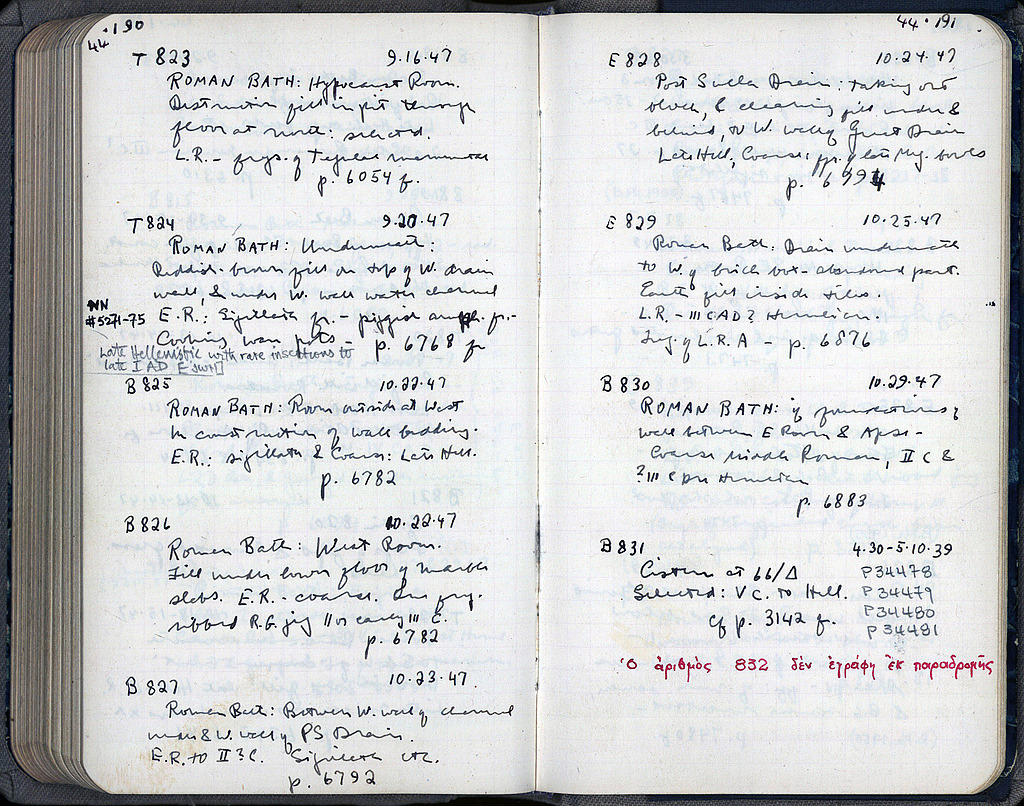 44·190
T 823 9·16·47
ROMAN BATH: Hypocaust Room.
Destruction fill in pit through
floor at north: selected.
L.R. – frags. of Tegulae mammatae
p. 6054 f.
T 824 9·20·47
ROMAN BATH: Underneath:
Reddish-brown fill on top of W. drain
wall, & under W. wall water channel
NN
#5271-75
E.R.: Sigillata fr. – amph. fr. –
Cooking ware pots – p. 6768 ff
Late Hellenistic with rare insertions to
late I AD E
B 825 10·22·47
ROMAN BATH: Room outside at West
In construction of wall bedding.
E.R.: Sigillata & Coarse: Late Hell.
p. 6782
B 826 10·22·47
Roman Bath: West Room.
Fill under lower floor of marble
slabs. E.R. – coarse. One frg.
ribbed R.G. jug II or early III C.
p. 6782
B 827 10·23·47
Roman Bath: Between W. wall of channel
under & W. wall of PS Drain.
E.R. to II–III C. Sigillata etc.
p. 6792
44·191
E 828 10·24·47
Post Sulla Drain: taking out
block, & cleaning fill under &
behind, to W. wall of Great Drain
Late Hell. Coarse; fr. of late Meg. bowls
p. 6994
E 829 10·25·47
Roman Bath: Drain underneath
to W. of brick box – abandoned part.
Earth fill inside tiles.
L.R. – III C AD? Herulian.
Frag. of L.R. A – p. 6876
B 830 10·29·47
ROMAN BATH: in foundations of
wall between E Room & Apse –
Coarse Middle Roman, II C &
? III C pre Herulian
p. 6883
B 831 4·30-5·10·39
Cistern at 66/Δ P34478
Selected: V C. to Hell. P34479
cf p. 3142 ff. P34480
P34481
Ὁ ἀριθμὸς 832 δὲν ἐγράφη ἐκ παραδρομῆς